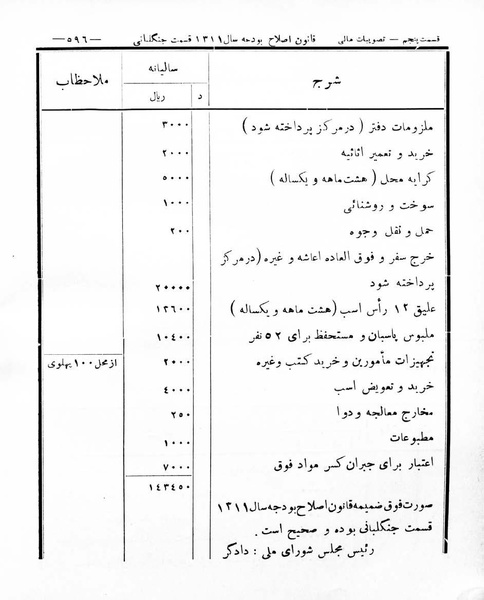 قسمت پنجم — تصویبات مالی قانون اصلاح بودجه سال ۱۳۱۱ قسمت جنگلبانی —۵۹۶—
شرح سالیانه ملاحظات
د ریال
ملزومات دفتر ( در مرکز پرداخته شود ) ۳۰۰۰
خرید و تعمیر اثاثیه ۲۰۰۰
کرایه محل ( هشت ماهه و یکساله ) ۵۰۰۰
سوخت و روشنائی ۱۰۰۰
حمل و نقل وجوه ۲۰۰
خرج سفر و فوق العاده اعاشه و غیره (در مرکز
پرداخته شود ۲۰۰۰۰
علیق ۱۲ رأس اسب (هشت ماهه و یکساله ) ۱۲۶۰۰
ملبوس پاسبان و مستحفظ برای ۵۲ نفر ۱۰۴۰۰
تجهیزات مأمورین و خرید کتب وغیره ۲۰۰۰ از محل ۱۰۰ پهلوی
خرید و تعویض اسب ۴۰۰۰
مخارج معالجه و دوا ۲۵۰
مطبوعات ۱۰۰۰
اعتبار برای جبران کسر مواد فوق ۷۰۰۰
۱۴۳۴۵۰
صورت فوق ضمیمه قانون اصلاح بودجه سال ۱۳۱۱
قسمت جنگلبانی بوده و صحیح است .
رئیس مجلس شورای ملی : دادگر